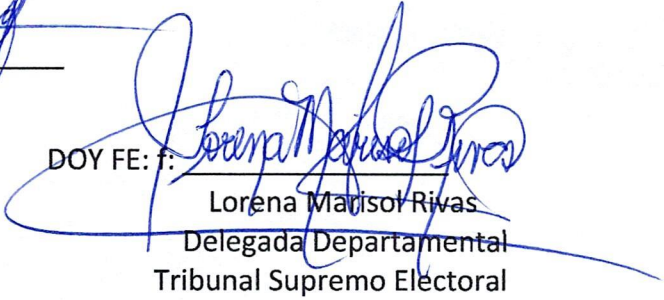 DOY FE: f: Lorena Marisol Rivas
Lorena Marisol Rivas
Delegada Departamental
Tribunal Supremo Electoral